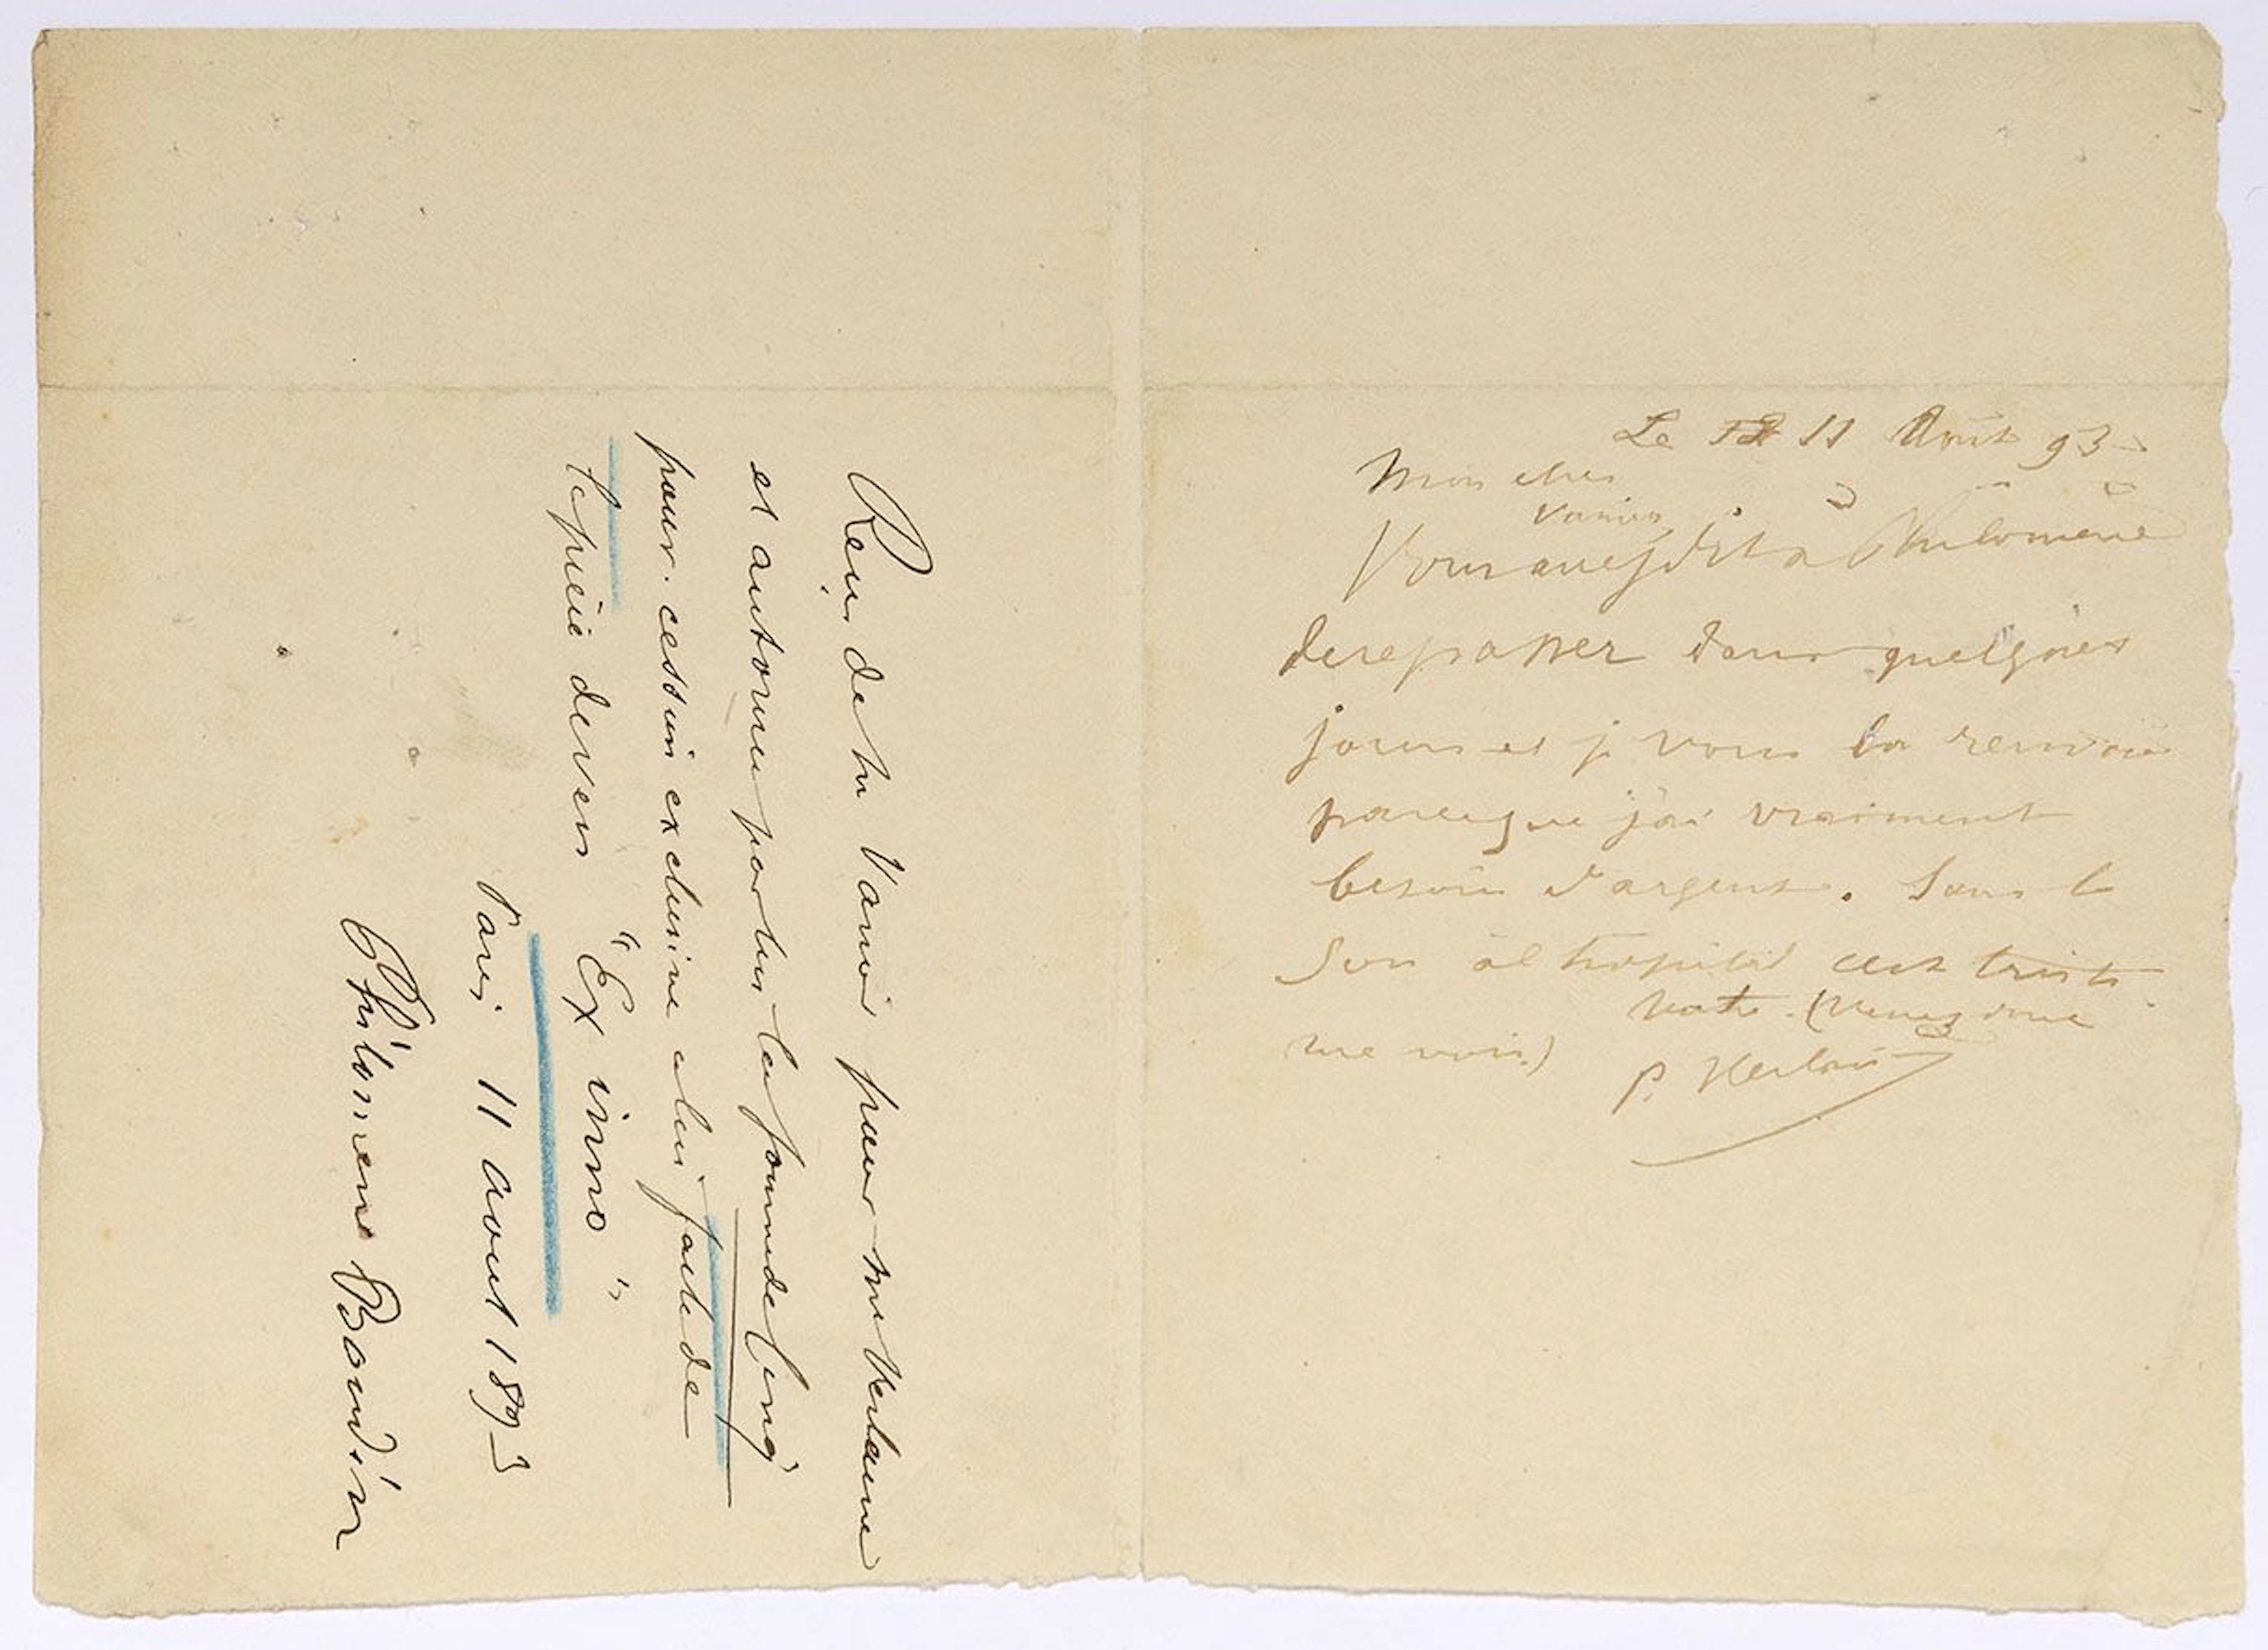 Le 11 Août 93
Mon cher
Vanier
Vous avez dit à Philomène
de repasser dans quelques
jours et je vous la renvoie
parceque j'ai vraiment
besoin d'argent. Sans le
Sou à l'hopital c'est triste.
Votre (Venez donc
me voir)
P. Verlaine
Reçu de Mr Vanier pour Mr Verlaine
et autorisée par lui la somme de cinq
pour cession exclusive à lui faite de
la pièce de vers "Ex imo"
Paris 11 aout 1893
Philomene Boudin